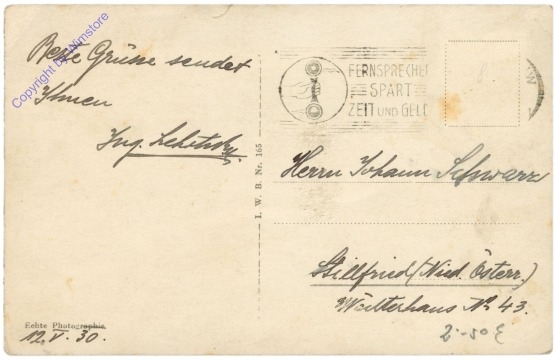 Beste Grüsse sendet
Ihnen
Ing.
Copyright by Wimstore
FERNSPRECHEN
SPART
ZEIT UND GELD
W
I. W. B. Nr. 165
Herrn Johann Schwarz
Stillfried (Nied. Österr.)
Weitterhaus No 43.
Echte Photographie
12. V. 30.
2-503